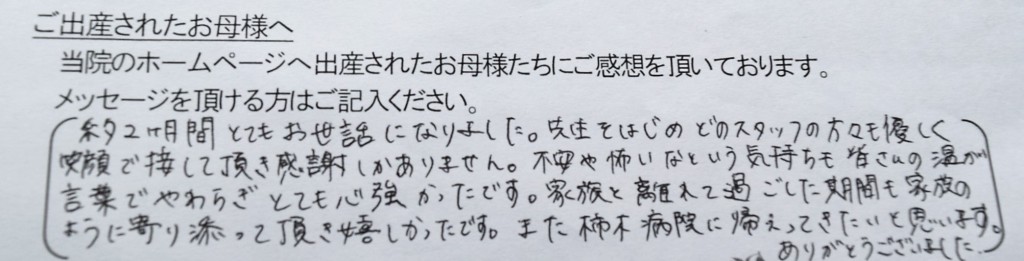 ご出産されたお母様へ
当院のホームページへ出産されたお母様たちにご感想を頂いております。
メッセージを頂ける方はご記入ください。
約2ヶ月間とてもお世話になりました。先生をはじめどのスタッフの方々も優しく
笑顔で接して頂き感謝しかありません。不安や怖いなという気持ちも皆さんの温かい
言葉でやわらぎとても心強かったです。家族と離れて過ごした期間も家族の
ように寄り添って頂き嬉しかったです。また柿木病院に帰えってきたいと思います。
ありがとうございました